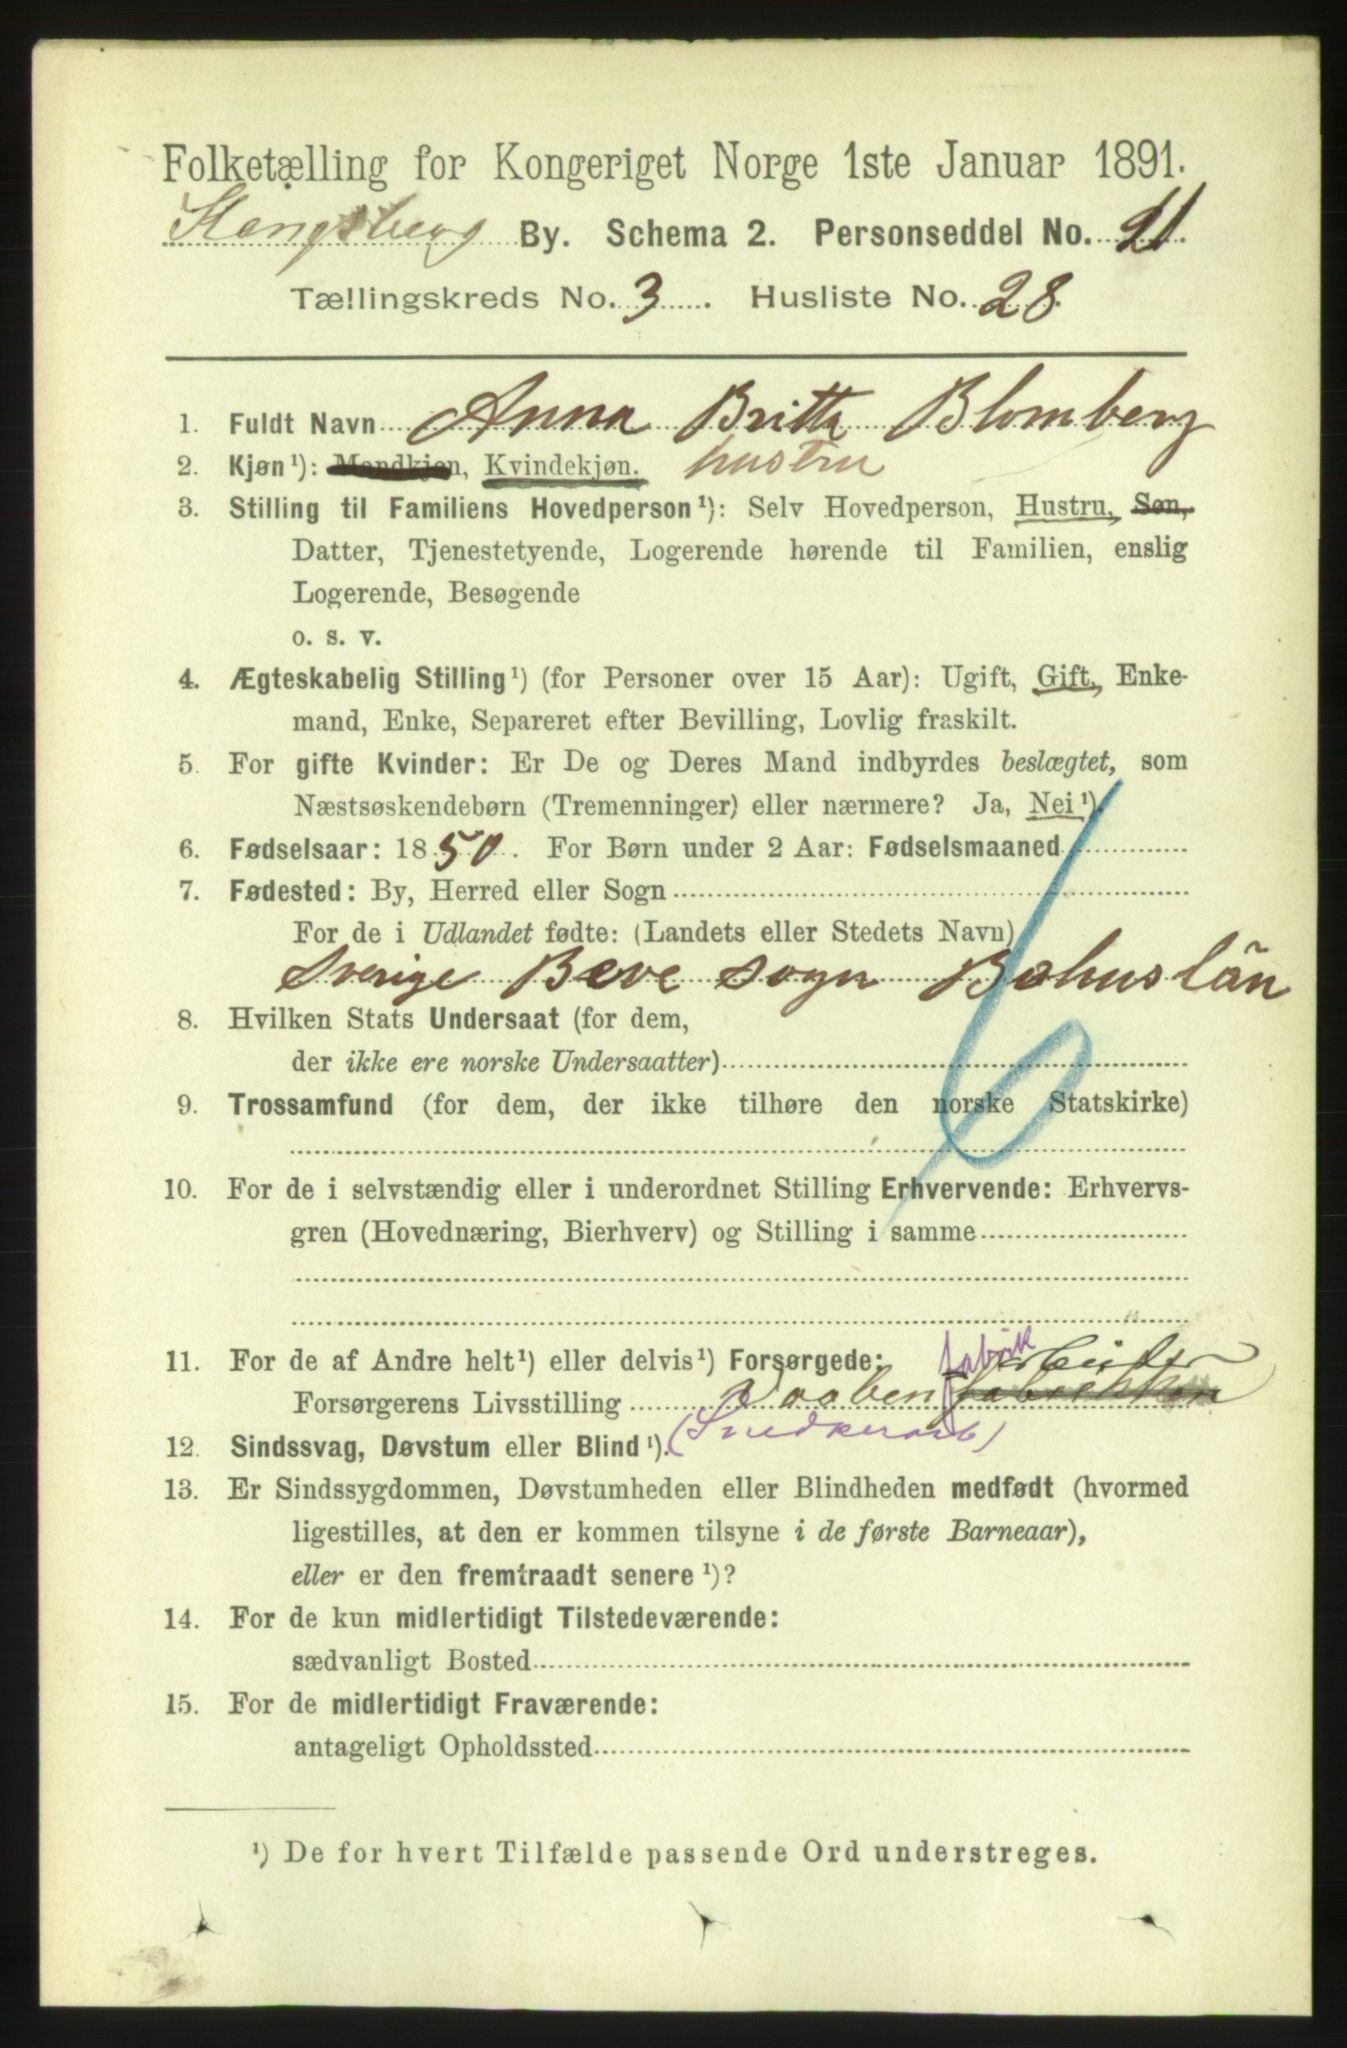 Folketælling for Kongeriget Norge 1ste Januar 1891.
Kongsberg By. Schema 2. Personseddel No. 21.
Tællingskreds No. 3. Husliste No. 28.
1. Fuldt Navn Anna Britta Blomberg
2. Kjøn¹): Mandkjøn, Kvindekjøn. hustru
3. Stilling til Familiens Hovedperson¹): Selv Hovedperson, Hustru, Søn,
Datter, Tjenestetyende, Logerende hørende til Familien, enslig
Logerende, Besøgende
o. s. v.
4. Ægteskabelig Stilling¹) (for Personer over 15 Aar): Ugift, Gift, Enke-
mand, Enke, Separeret efter Bevilling, Lovlig fraskilt.
5. For gifte Kvinder: Er De og Deres Mand indbyrdes beslægtet, som
Næstsøskendebørn (Tremenninger) eller nærmere? Ja, Nei¹).
6. Fødselsaar: 1850. For Børn under 2 Aar: Fødselsmaaned
7. Fødested: By, Herred eller Sogn
For de i Udlandet fødte: (Landets eller Stedets Navn)
Sverige Beve sogn Bohuslän
8. Hvilken Stats Undersaat (for dem,
der ikke ere norske Undersaatter)
9. Trossamfund (for dem, der ikke tilhøre den norske Statskirke)
10. For de i selvstændig eller i underordnet Stilling Erhvervende: Erhvervs-
gren (Hovednæring, Bierhverv) og Stilling i samme
11. For de af Andre helt¹) eller delvis¹) Forsørgede: fabrik arbeider
Forsørgerens Livsstilling Vaaben fabrikken
12. Sindssvag, Døvstum eller Blind¹). (Snedkerarb)
13. Er Sindssygdommen, Døvstumheden eller Blindheden medfødt (hvormed
ligestilles, at den er kommen tilsyne i de første Barneaar),
eller er den fremtraadt senere¹)?
14. For de kun midlertidigt Tilstedeværende:
sædvanligt Bosted
15. For de midlertidigt Fraværende:
antageligt Opholdssted
¹) De for hvert Tilfælde passende Ord understreges.